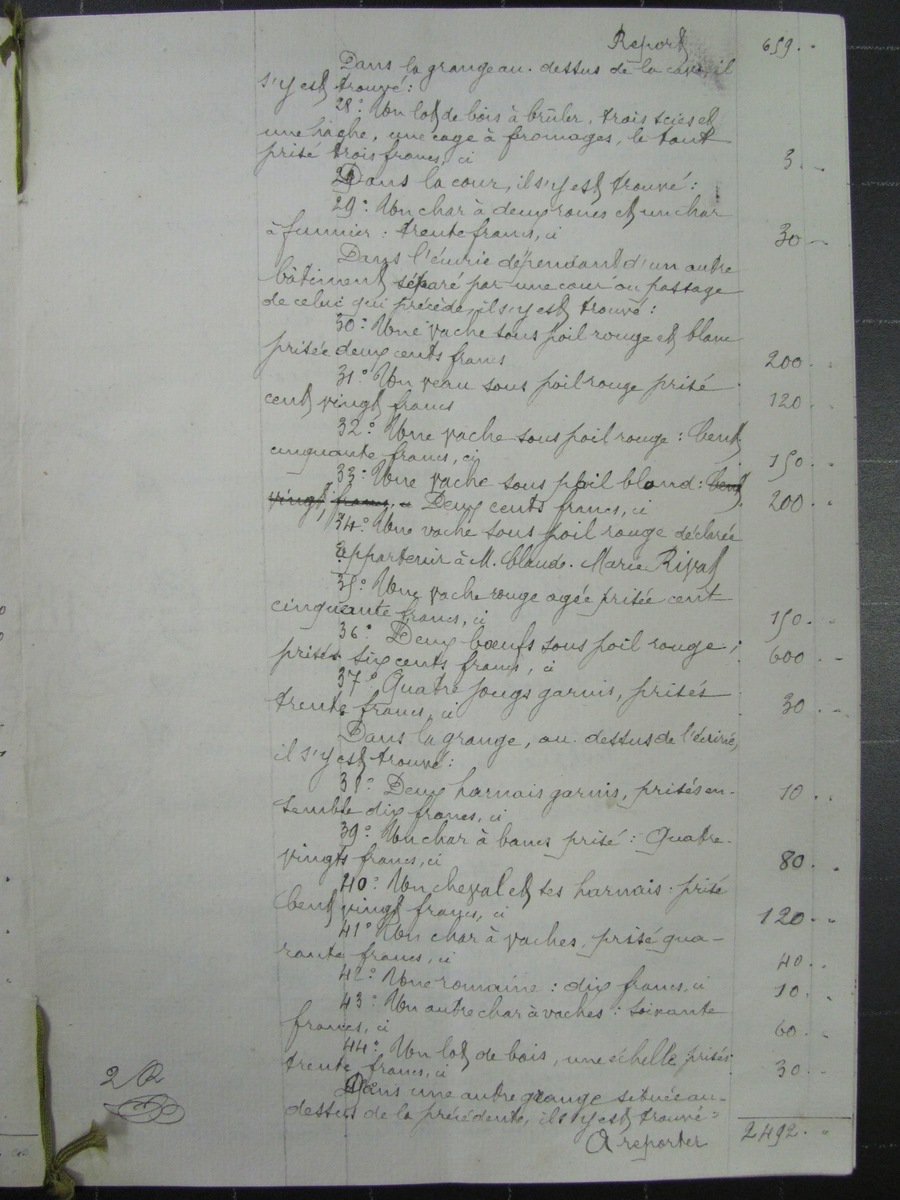 Report 659..
Dans la grange au-dessus de la cave, il
s'y est trouvé:
28° Un lot de bois à brûler, trois scies et
une hache, une cage à fromages, le tout
prisé trois francs, ci 3.-
Dans la cour, il s'y est trouvé:
29° Un char à deux roues et un char
à fumier: trente francs, ci 30-
Dans l'écurie dépendant d'un autre
bâtiment séparé par une cour ou passage
de celui qui précède, il s'y est trouvé:
30° Une vache sous poil rouge et blanc
prisée deux cents francs 200..
31° Un veau sous poil rouge prisé
cent vingt francs 120..
32° Une vache sous poil rouge: Cent
cinquante francs, ci 150..
33° Une vache sous poil blond: Cent
vingt francs, ci Deux cents francs, ci 200..
34° Une vache sous poil rouge déclarée
appartenir à M. Claude-Marie Rival
35° Une vache rouge agée prisée cent
cinquante francs, ci 150.-
36° Deux bœufs sous poil rouge;
prisés six cents francs, ci 600.-
37° Quatre jougs garnis, prisés
trente francs, ci 30.-
Dans la grange, au-dessus de l'écurie,
il s'y est trouvé:
38° Deux harnais garnis, prisés en-
semble dix francs, ci 10..
39° Un char à bancs prisé: Quatre-
vingts francs, ci 80..
40° Un cheval et ses harnais prisé
Cent vingt francs, ci 120..
41° Un char à vaches, prisé qua-
rante francs, ci 40..
42° Une romaine: dix francs, ci 10.
43° Un autre char à vaches: soixante
francs, ci 60.-
44° Un lot de bois, une échelle, prisés
trente francs, ci 30.-
Dans une autre grange située au-
dessus de la précédente, il s'y est trouvé:
A reporter 2492.